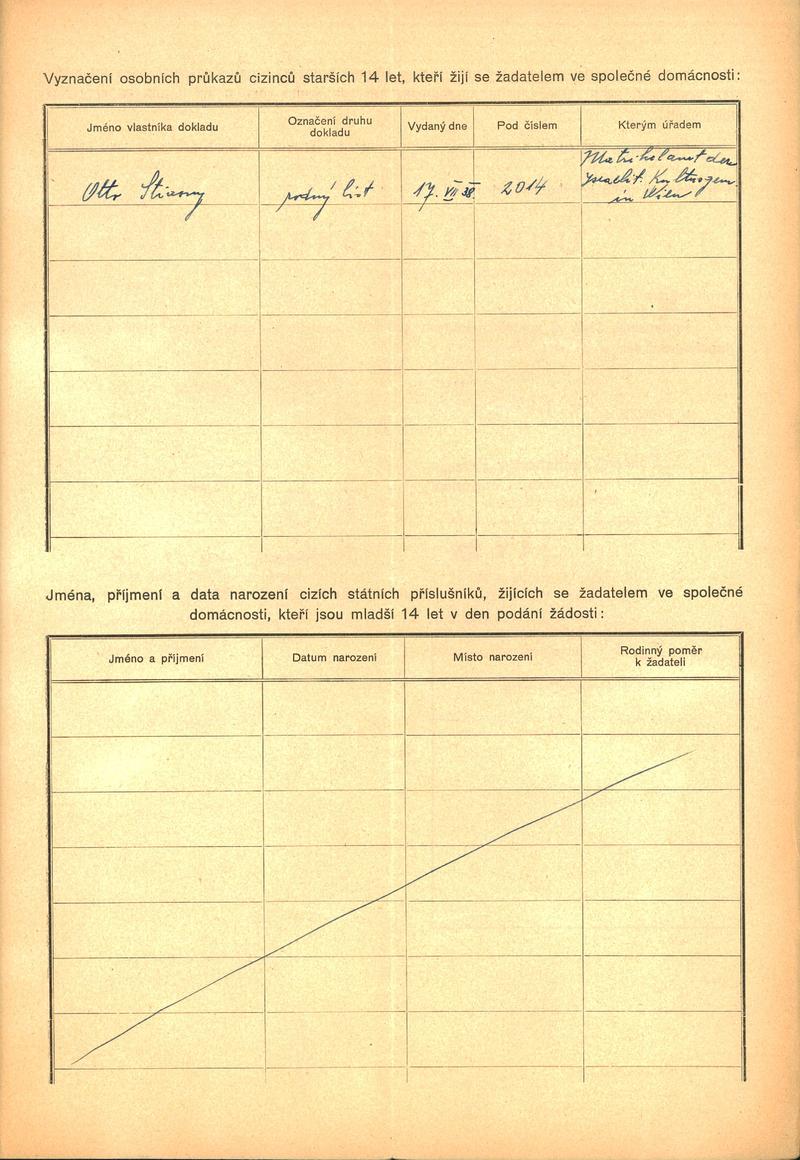 Vyznačení osobních průkazů cizinců starších 14 let, kteří žijí se žadatelem ve společné domácnosti:
Jméno vlastníka dokladu
Označení druhu
dokladu
Vydaný dne
Pod číslem
Kterým úřadem
Otto Stiasny
rodný list
17. VII 38.
2014
Matrikelamt der
Israelit. Kultusgem.
in Wien
Jména, příjmení a data narození cizích státních příslušníků, žijících se žadatelem ve společné
domácnosti, kteří jsou mladší 14 let v den podání žádosti:
Jméno a příjmení
Datum narození
Místo narození
Rodinný poměr
k žadateli